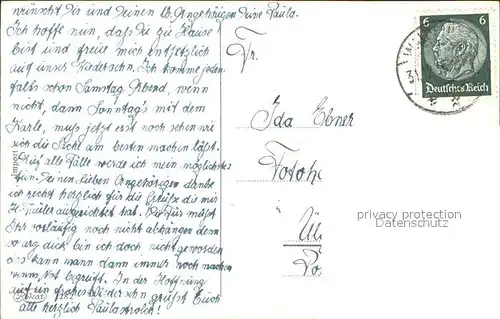 wünscht Dir und Deinen lb. Angehörigen Deine Paula.
Ich hoffe nun, daß Du zu Hause
bist und freue mich entsetzlich
auf unser Wiedersehn. Ich komme jeden-
falls schon Samstag Abend, wenn
nicht, dann Sonntag's mit dem
Karle, muß jetzt erst noch sehen wie
sich die Sache am besten machen läßt.
Auf alle Fälle werde ich mein möglichstes
tun. Deinen lieben Angehörigen danke
ich recht herzlich für die Grüße die mir
H. Müller ausgerichtet hat. Dafür müßt
Ihr vorläufig noch nicht abhängen denn
so arg dick bin ich doch nicht geworden
das kann man dann immer noch machen
wenns Not In der Hoffnung
auf ein frohes Wiedersehn grüßt Euch
alle herzlich
Frl.
Ida Ebner
Fotoh
6 6
Deutsches Reich
privacy protection
Datenschutz